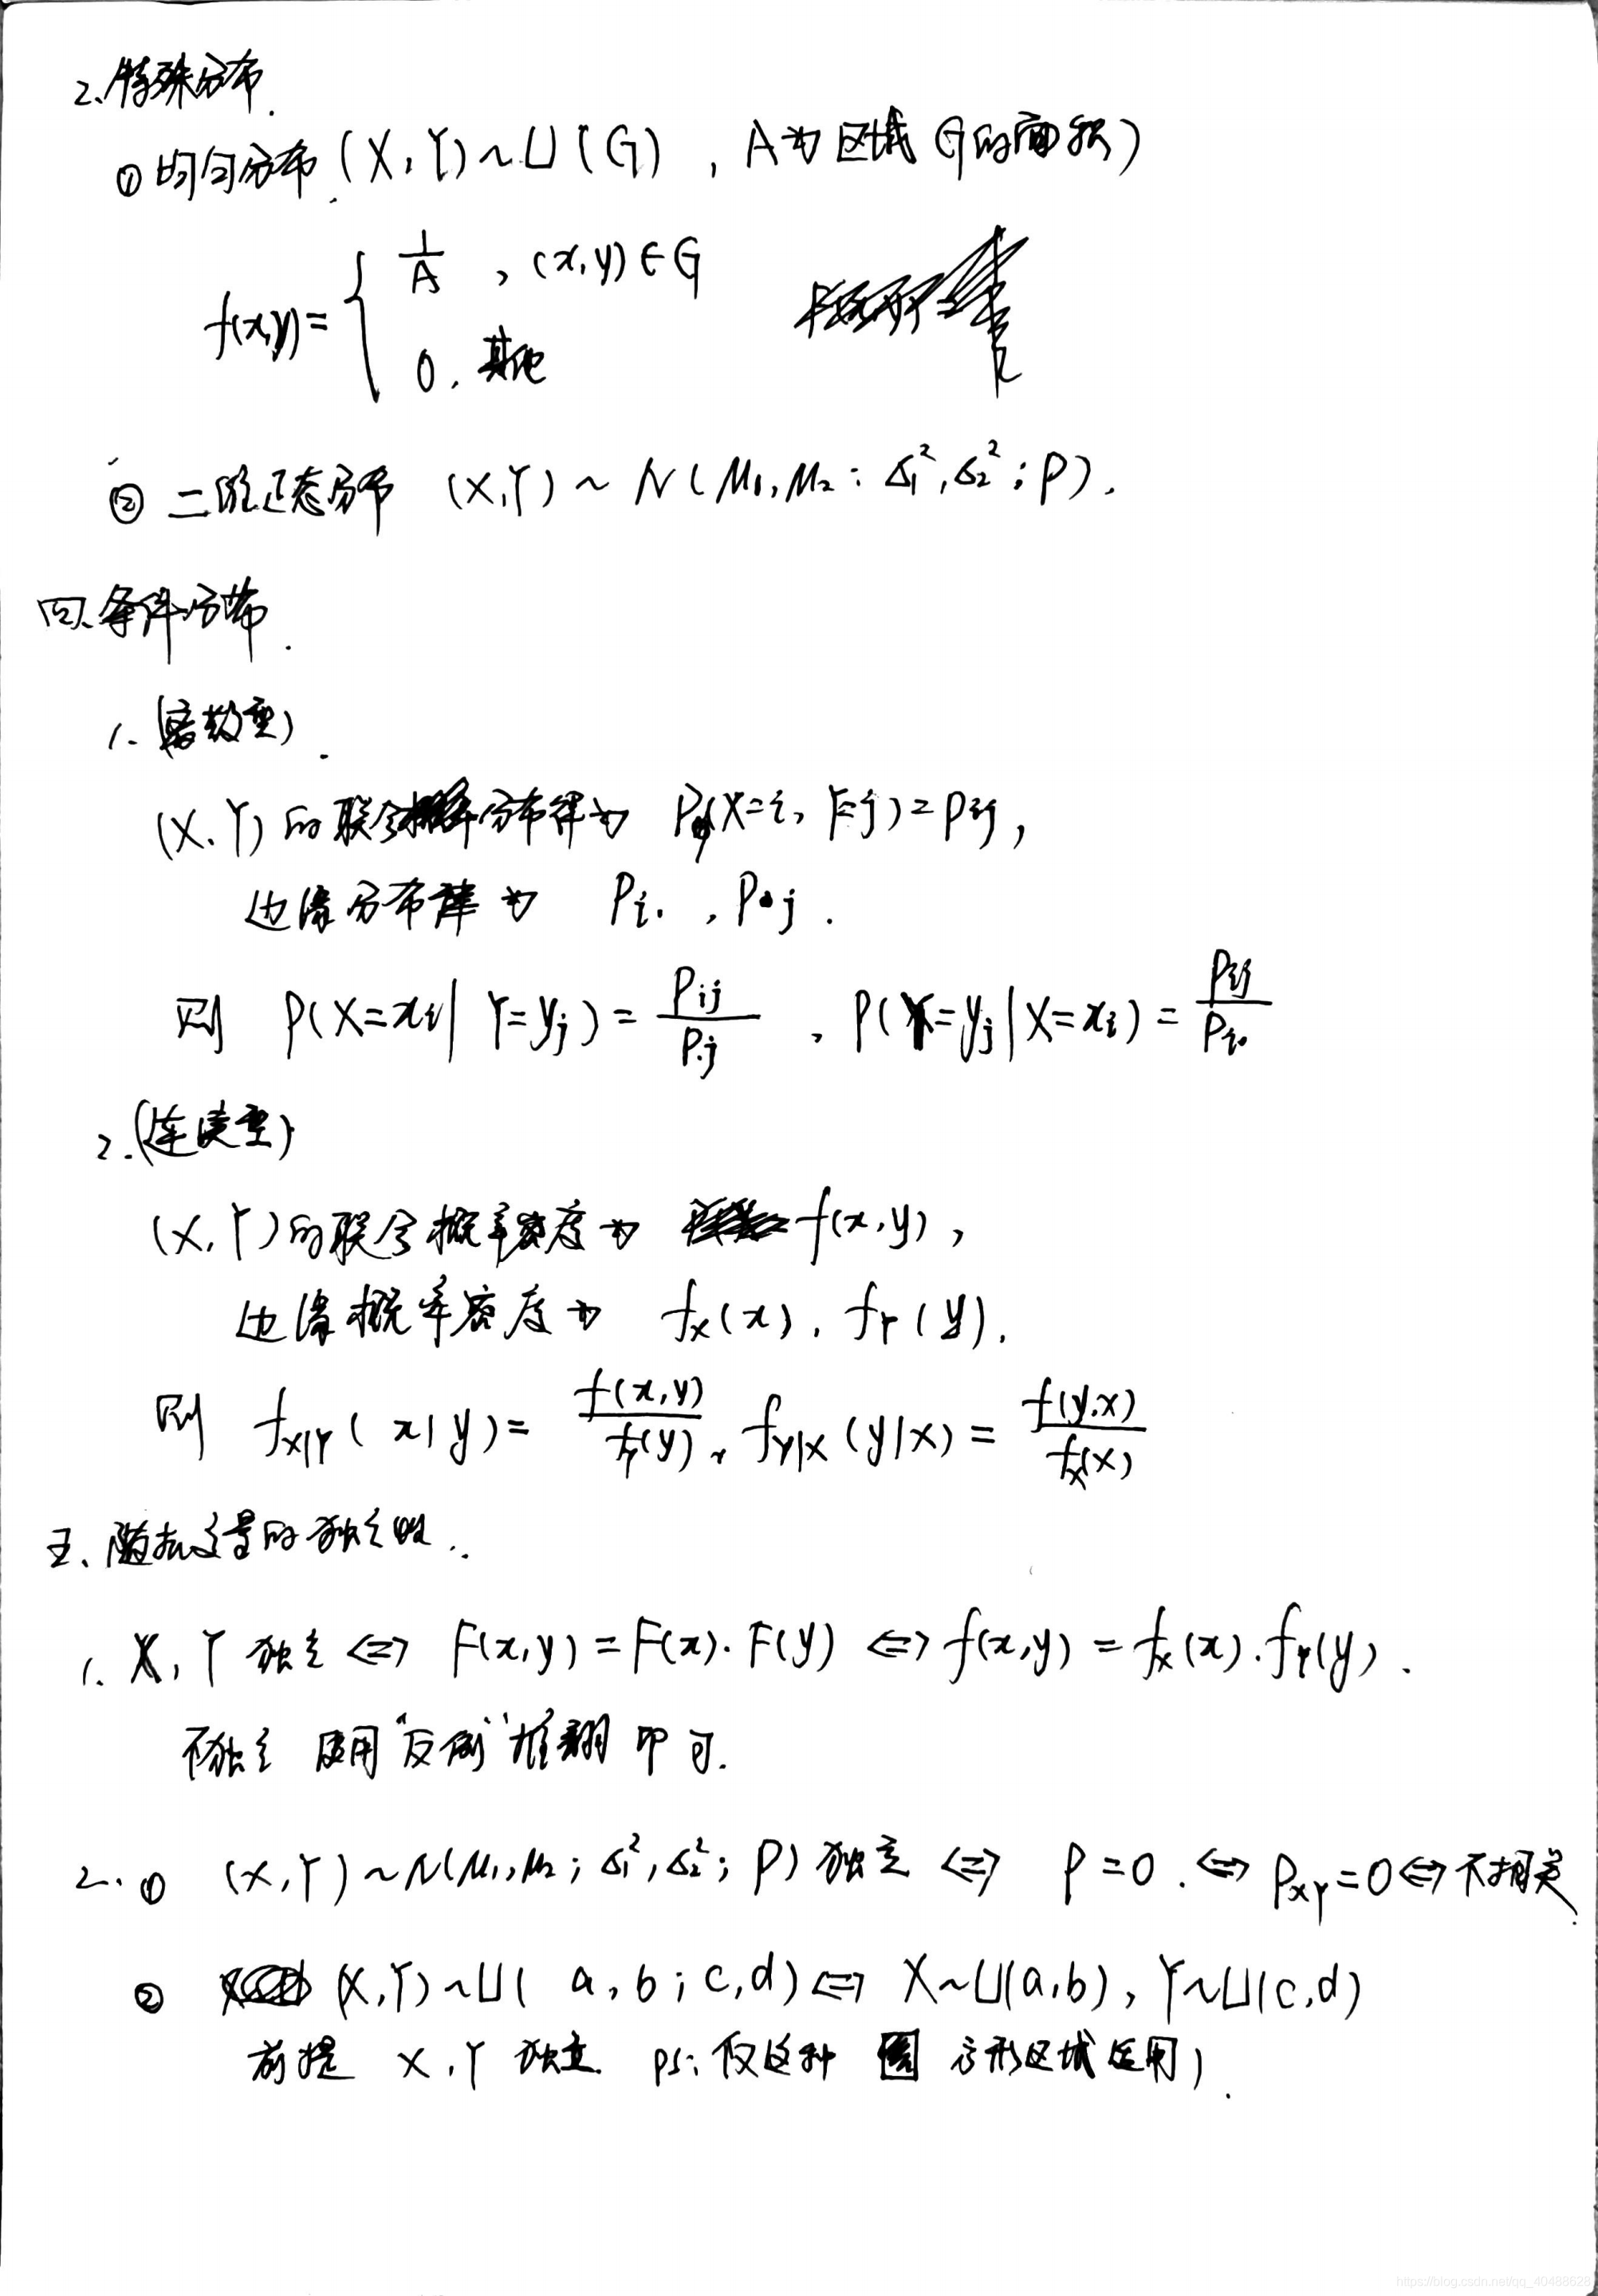 2.特殊分布.
① 均匀分布 (X,Y)~U(G) , A为区域G的面积)
f(x,y)= { 1/A , (x,y)∈G
0. 其他
② 二维正态分布 (X,Y) ~ N(μ1,μ2;σ1²,σ2²;ρ).
四.条件分布.
1.(离散型).
(X,Y)的联合 分布律为 P(X=i, Y=j)=Pij,
边缘分布律为 Pi. , P•j .
则 P(X=xi| Y=yj)= Pij/P.j , P(Y=yj|X=xi)= Pij/Pi.
2.(连续型)
(X,Y)的联合概率密度为 f(x,y),
边缘概率密度为 fX(x), fY(y).
则 fX|Y(x|y)= f(x,y)/fY(y) , fY|X(y|x)= f(y,x)/fX(x)
五、随机变量的独立性..
1. X, Y 独立 ⇔ F(x,y)=F(x)·F(y) ⇔ f(x,y)=fX(x)·fY(y).
不独立 使用“反例”推翻即可.
2. ① (X,Y)~N(μ1,μ2;σ1²,σ2²;ρ) 独立 ⇔ ρ=0. ⇔ ρXY=0⇔不相关.
② (X,Y)~U(a,b;c,d)⇔ X~U(a,b), Y~U(c,d)
前提 X,Y 独立. ps:仅这种 方形区域适用).
https://blog.csdn.net/qq_40488628